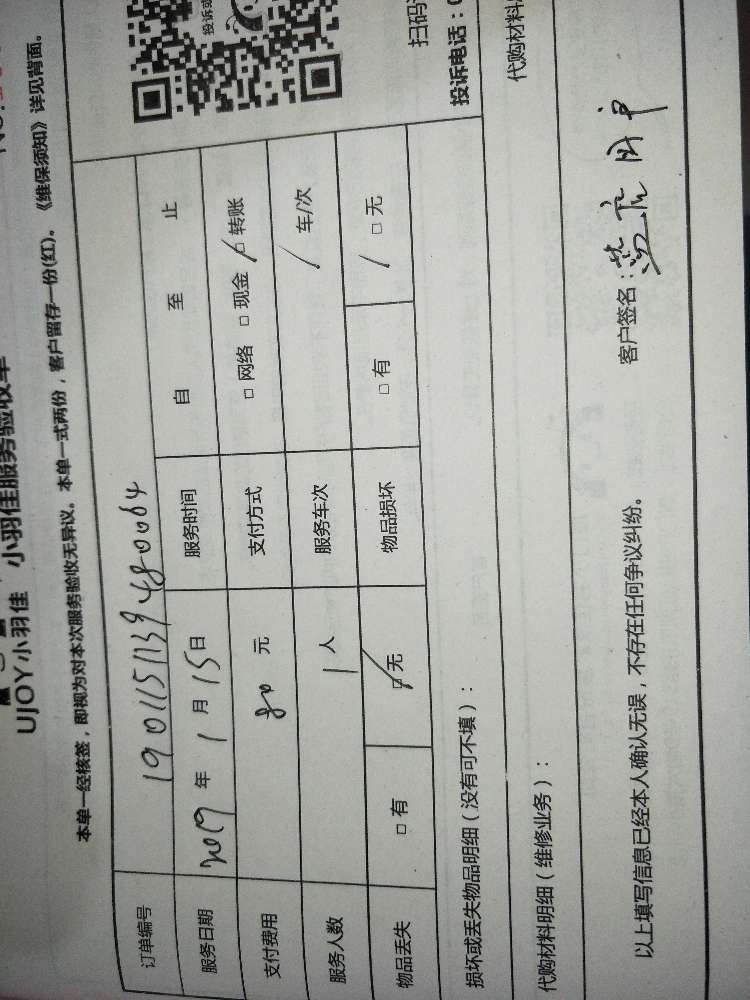 UJOY小羽佳 小羽佳服务验收单
本单一经核签，即视为对本次服务验收无异议。本单一式两份，客户留存一份(红)。《维保须知》详见背面。
订单编号 1901151139480064
服务日期 2019 年 1 月 15 日 服务时间 自 至 止
支付费用 80 元 支付方式 □网络 □现金 □转账
服务人数 1 人 服务车次 / 车/次
物品丢失 □有 □无 物品损坏 □有 □无
损坏或丢失物品明细（没有可不填）：
代购材料明细（维修业务）：
以上填写信息已经本人确认无误，不存在任何争议纠纷。
客户签名：
扫码
投诉电话：0
代购材料
投诉或